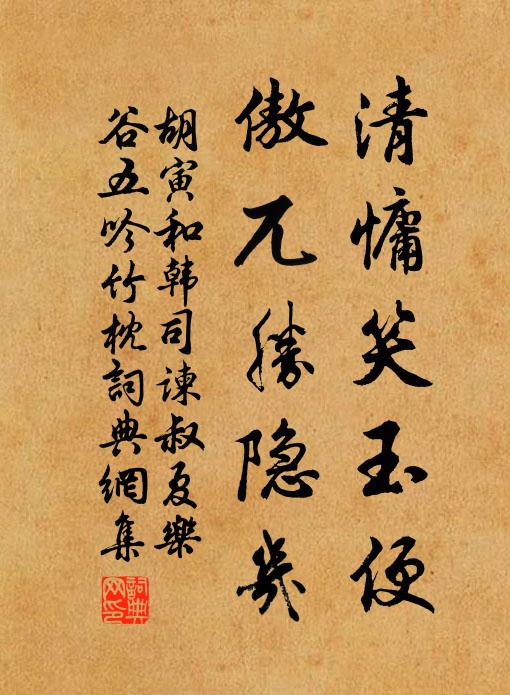 清慵笑玉便
傲兀勝隐幾
胡寅和韩司諫叔夏樂
谷五吟竹枕詞典網集
詞典
网印